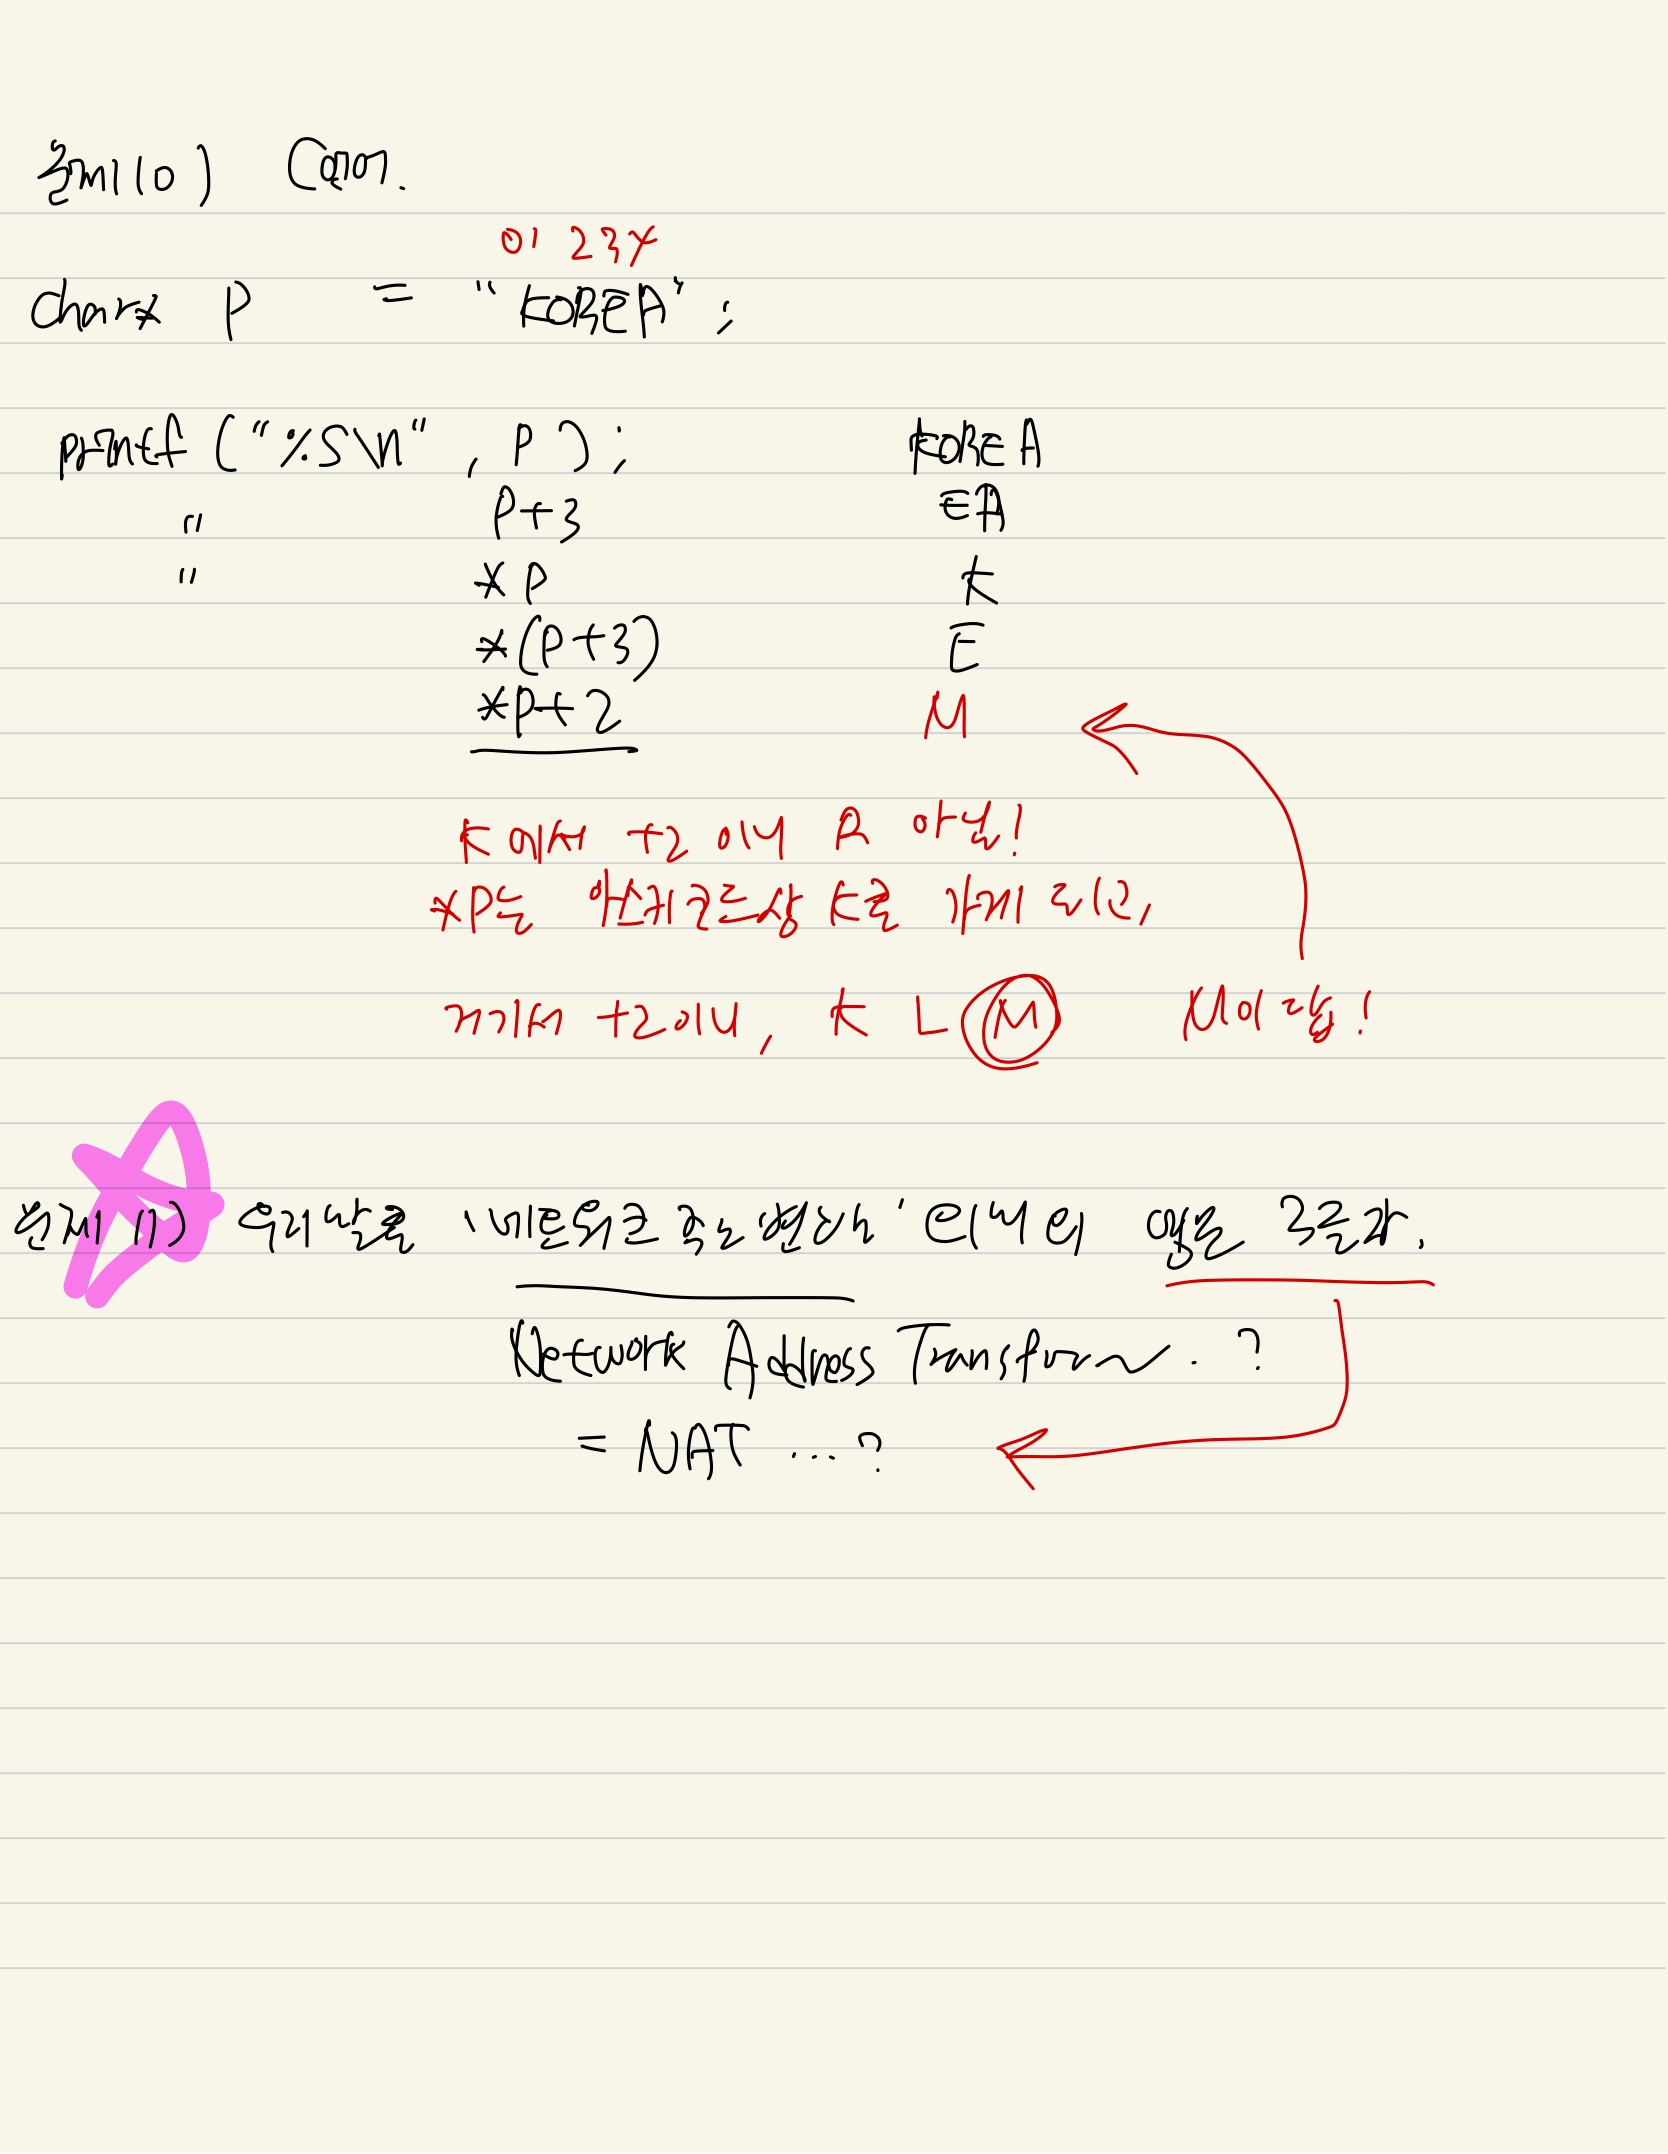 문제 10) C언어.
01 234
char* P = "KOREA";
printf ("%s\n", P); KOREA
" P+3 EA
" *P K
*(P+3) E
*P+2 M
K에서 +2이니 R 아님!
*P는 아스키코드상 K를 가게 되고,
거기서 +2이니, K L M M이 답!
문제 11) 우리말로 '네트워크 주소 변환' 이며 의 영문 3글자.
Network Address Transform. ?
= NAT ...?